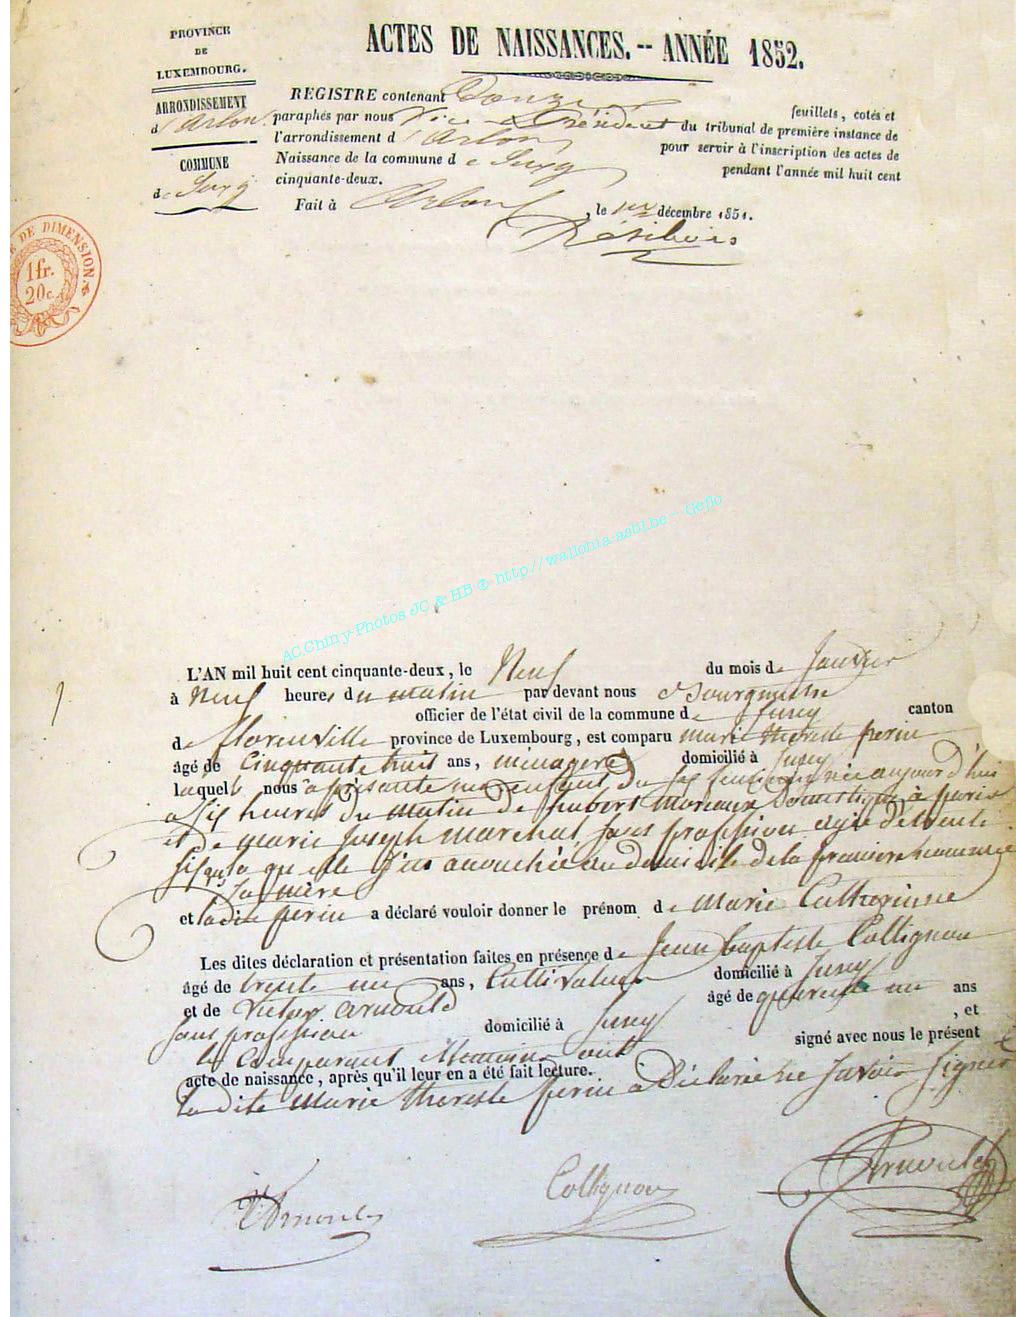 PROVINCE
DE
LUXEMBOURG.
ARRONDISSEMENT
d'Arlon
COMMUNE
de Suxy
ACTES DE NAISSANCES. -- ANNÉE 1852.
REGISTRE contenant Douze feuillets, cotés et
paraphés par nous Vice-Président du tribunal de première instance de
l'arrondissement d'Arlon pour servir à l'inscription des actes de
Naissance de la commune de Suxy pendant l'année mil huit cent
cinquante-deux.
Fait à Arlon, le décembre 1851.
DE DIMENSION.
1 fr.
20 c.
AC.Chiny-Photos JC & HB @ http://wallonia-asbl.be - Geflo
1.
L'AN mil huit cent cinquante-deux, le Neuf du mois de Janvier
à Neuf heures du matin par devant nous Bourgmestre
officier de l'état civil de la commune de Suxy canton
de florenville province de Luxembourg, est comparu marie thereste perin
âgé de Cinquante huit ans, ménagere domicilié à Suxy
laquelle nous a présenté un enfant du née aujourd'hui
a six heures du matin de hubert Domestique à paris
et de marie Joseph marchal sans profession agée de trente
six que elle accouchée au domicile de la
Sa mère
et ladite perin a déclaré vouloir donner le prénom de Marie Catherinne
Les dites déclaration et présentation faites en présence de Jean baptiste Collignon
âgé de trente un ans, Cultivateur domicilié à Suxy
et de Victor arnould âgé de quarente un ans
sans profession domicilié à Suxy, et
les Comparant et temoins ont signé avec nous le présent
acte de naissance, après qu'il leur en a été fait lecture.
la dite Marie thereste perin a Déclaré ne Savoir Signer
V Arnould
Collignon
Arnould